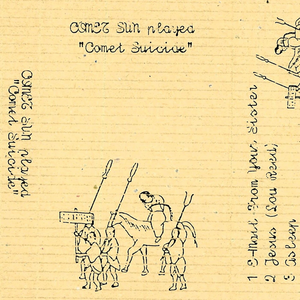 COMET SUN played
"Comet Suicide"
COMET SUN played
"Comet Suicide"
1 E-Mail From Your Sister
2 Jesus (Lou Reed)
3